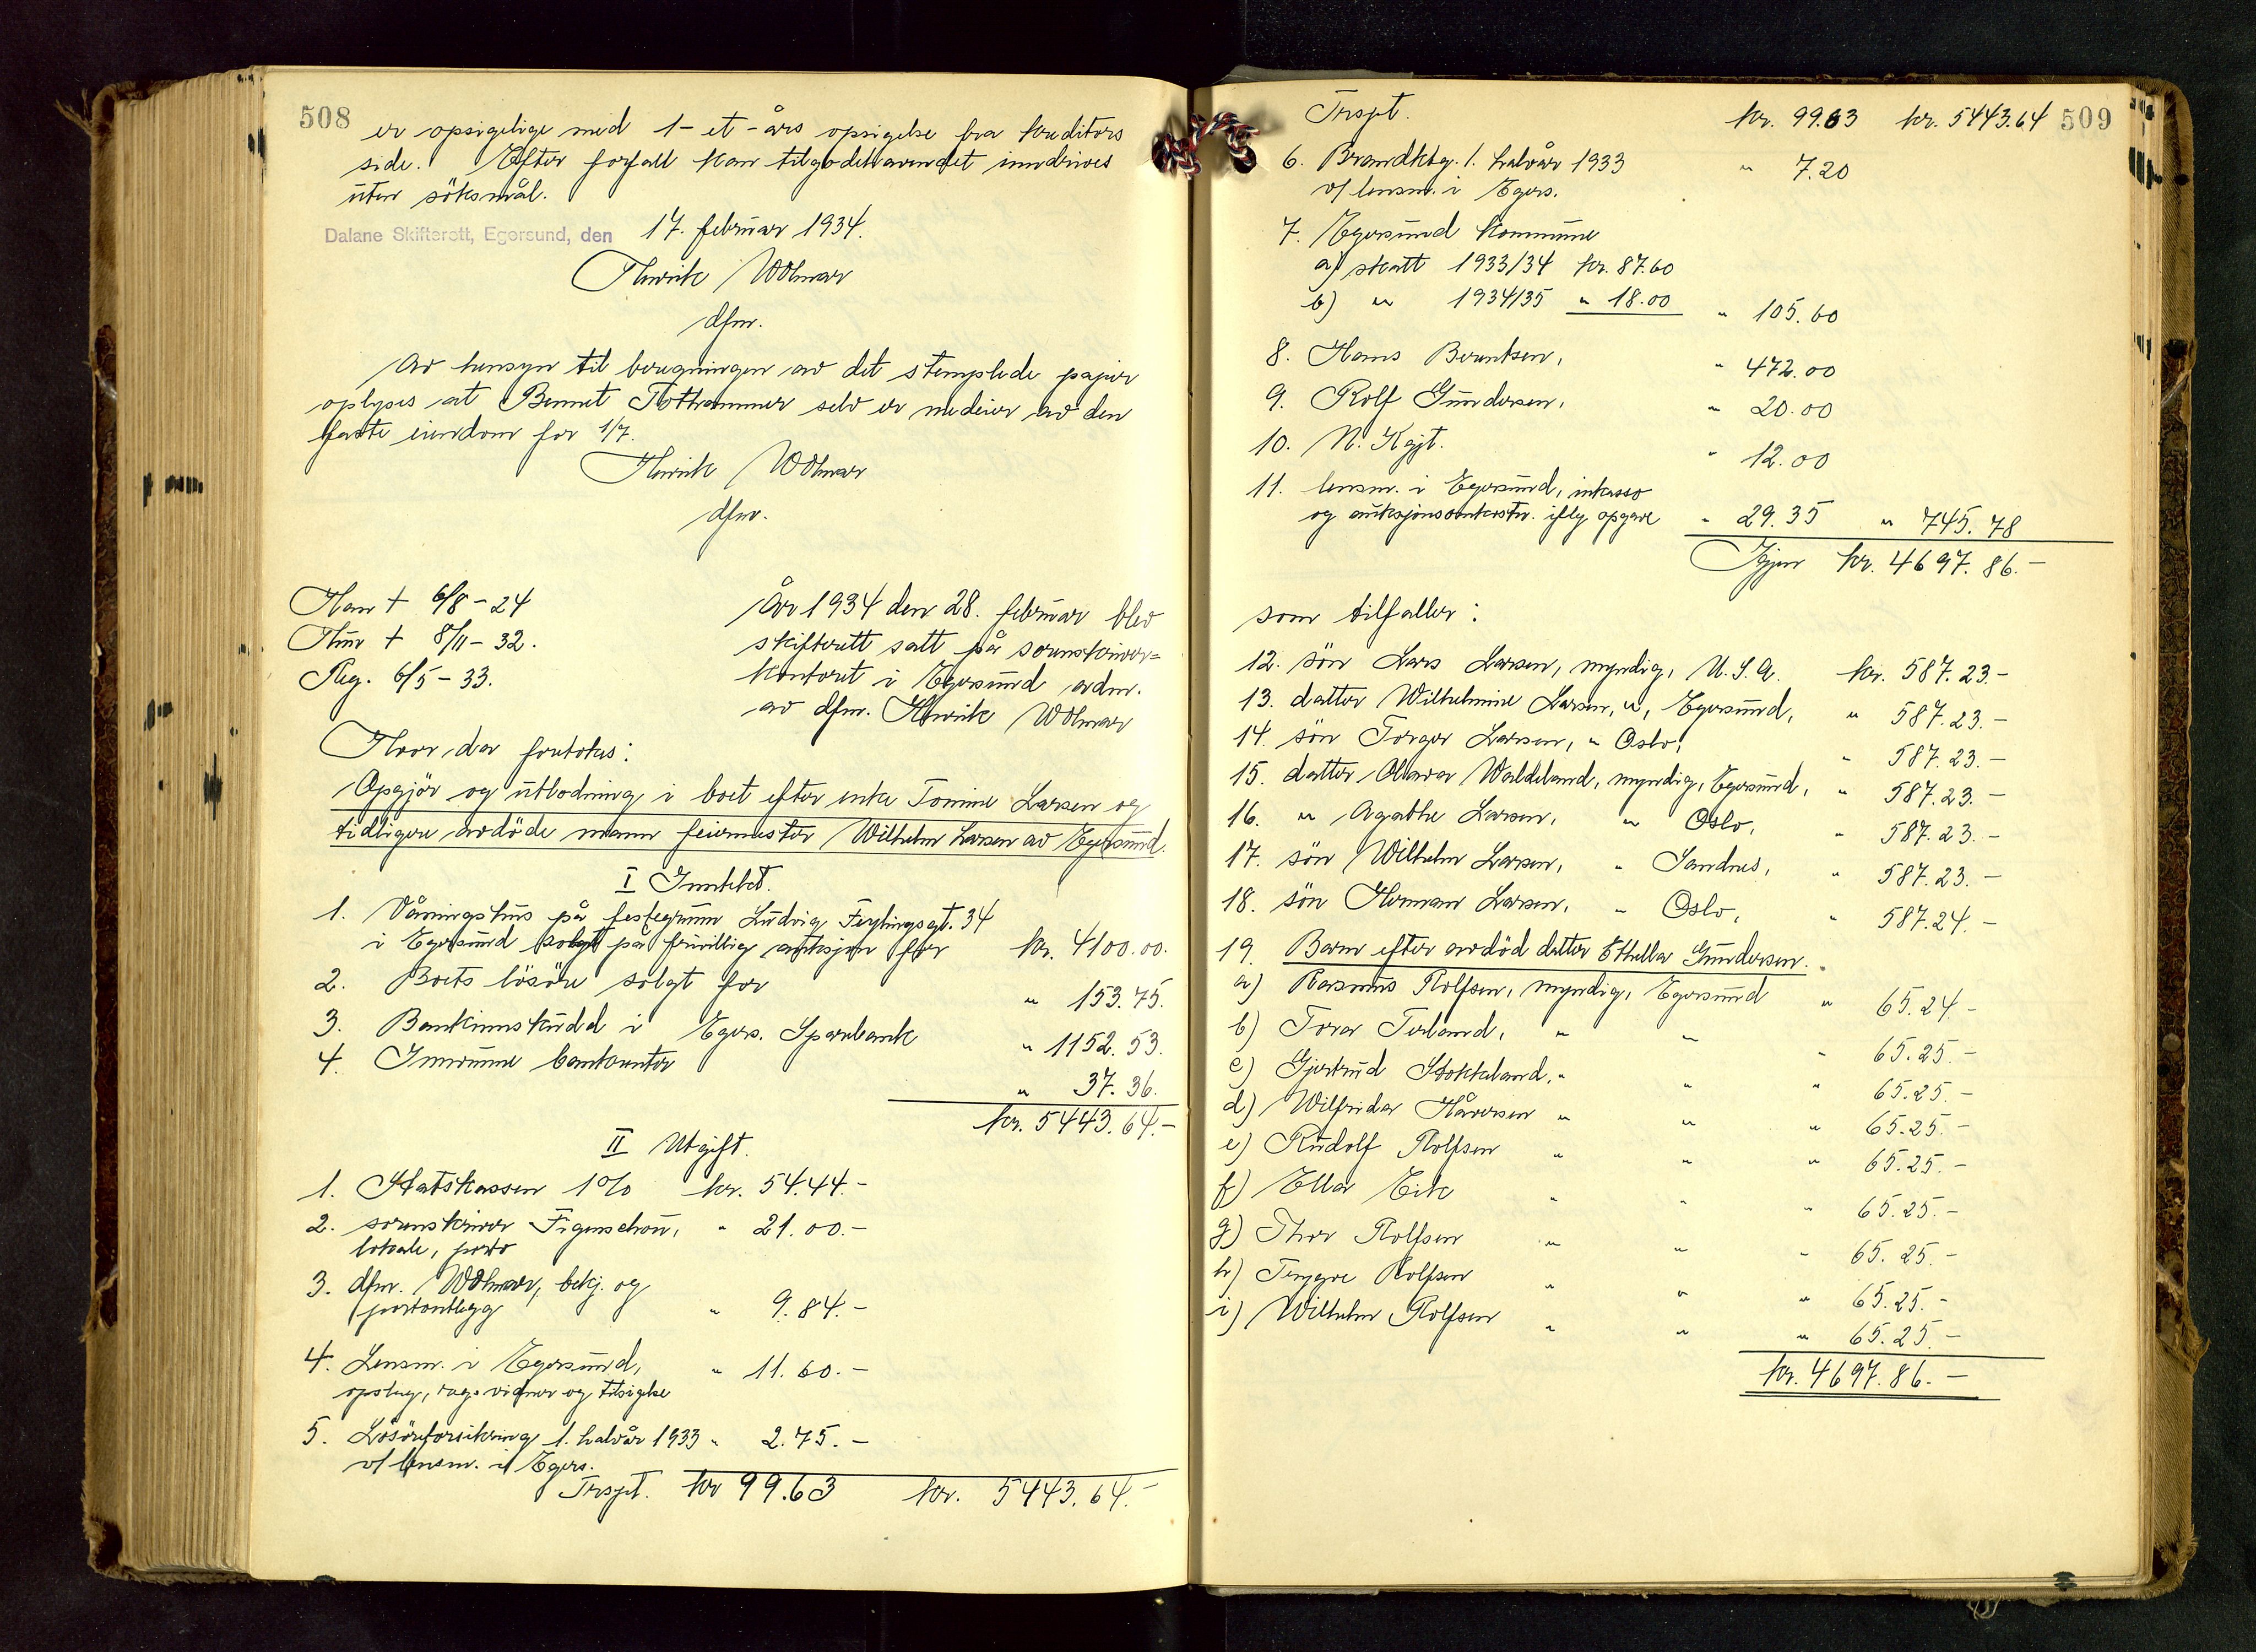 508
er opsigelige med 1-et-års opsigelse fra kreditors
side. Efter forfall kan tilgodehavendet inndrives
uten söksmål.
Dalane Skifterett, Egersund, den 17. februar 1934.
Henrik Wolmar
dfm.
Av hensyn til beregningen av det stemplede papir
oplyses at Bennet selv er medeier av den
faste eiendom for 1/7.
Henrik Wolmar
dfm.
Han † 6/8-24
Hun † 8/11-32.
Reg. 6/5-33.
År 1934 den 28. februar blev
skifterett satt på sorenskriver=
kontoret i Egersund adm.
av dfm. Henrik Wolmar
Hvor da foretokes:
Opgjör og utlodning i boet efter enke Tomine Larsen og
tidligere avdöde mann feiermester Wilhelm Larsen av Egersund.
I Inntekt.
1. Våningshus på festegrunn Ludvig Feylingsgt. 34
i Egersund solgt på frivillig auksjon for kr. 4100.00.
2. Boets lösöre solgt for " 153.75.
3. Bankinnskudd i Egers. Sparebank " 1152.53.
4. Innvunne bankrenter " 37.36.
kr. 5443.64.-
II Utgift.
1. Statskassen 1% kr. 54.44.-
2. sorenskriver Figenschou, " 21.00.-
lokale, porto
3. dfm. Wolmar, bekj. og
portoutlegg " 9.84.-
4. Lensm. i Egersund, " 11.60.-
opslag, og tilsigelse
5. Lösöreforsikring 1. halvår 1933 " 2.75.-
v/ lensm. i Egers.
Trspt. kr 99.63 kr. 5443.64.-
Trspt. kr. 99.63 kr. 5443.64 509
6. Brandktg. 1. halvår 1933 " 7.20
v/ lensm. i Egers.
7. Egersund kommune
a) skatt 1933/34 kr. 87.60
b) " 1934/35 " 18.00 " 105.60
8. Hans Berentsen, " 472.00
9. Rolf Gundersen, " 20.00
10. N. " 12.00
11. lensm. i Egersund, inkasso
og auksjonsomkostn. iflg opgave " 29.35 " 745.78
Igjen kr. 4697.86.-
som tilfaller:
12. sön Lars Larsen, myndig, U.S.A. kr. 587.23.-
13. datter Wilhelmine Larsen, ", Egersund, " 587.23.-
14. sön Torger Larsen, " Oslo, " 587.23.-
15. datter Olava Waldeland, myndig, Egersund, " 587.23.-
16. " Agathe Larsen, " Oslo, " 587.23.-
17. sön Wilhelm Larsen, " Sandnes, " 587.23.-
18. sön Herman Larsen, " Oslo, " 587.24.-
19. Barn efter avdöd datter Gundersen.
a) Rasmus Rolfsen, myndig, Egersund " 65.24.-
b) Tora Terland, " " " 65.25.-
c) Gjertrud Stokkeland, " " " 65.25.-
d) Wilfrida Håversen " " " 65.25.-
e) Rudolf Rolfsen " " " 65.25.-
f) Ella Eik " " " 65.25.-
g) Thor Rolfsen " " " 65.25.-
h) Trygve Rolfsen " " " 65.25.-
i) Wilhelm Rolfsen " " " 65.25.-
kr. 4697.86.-